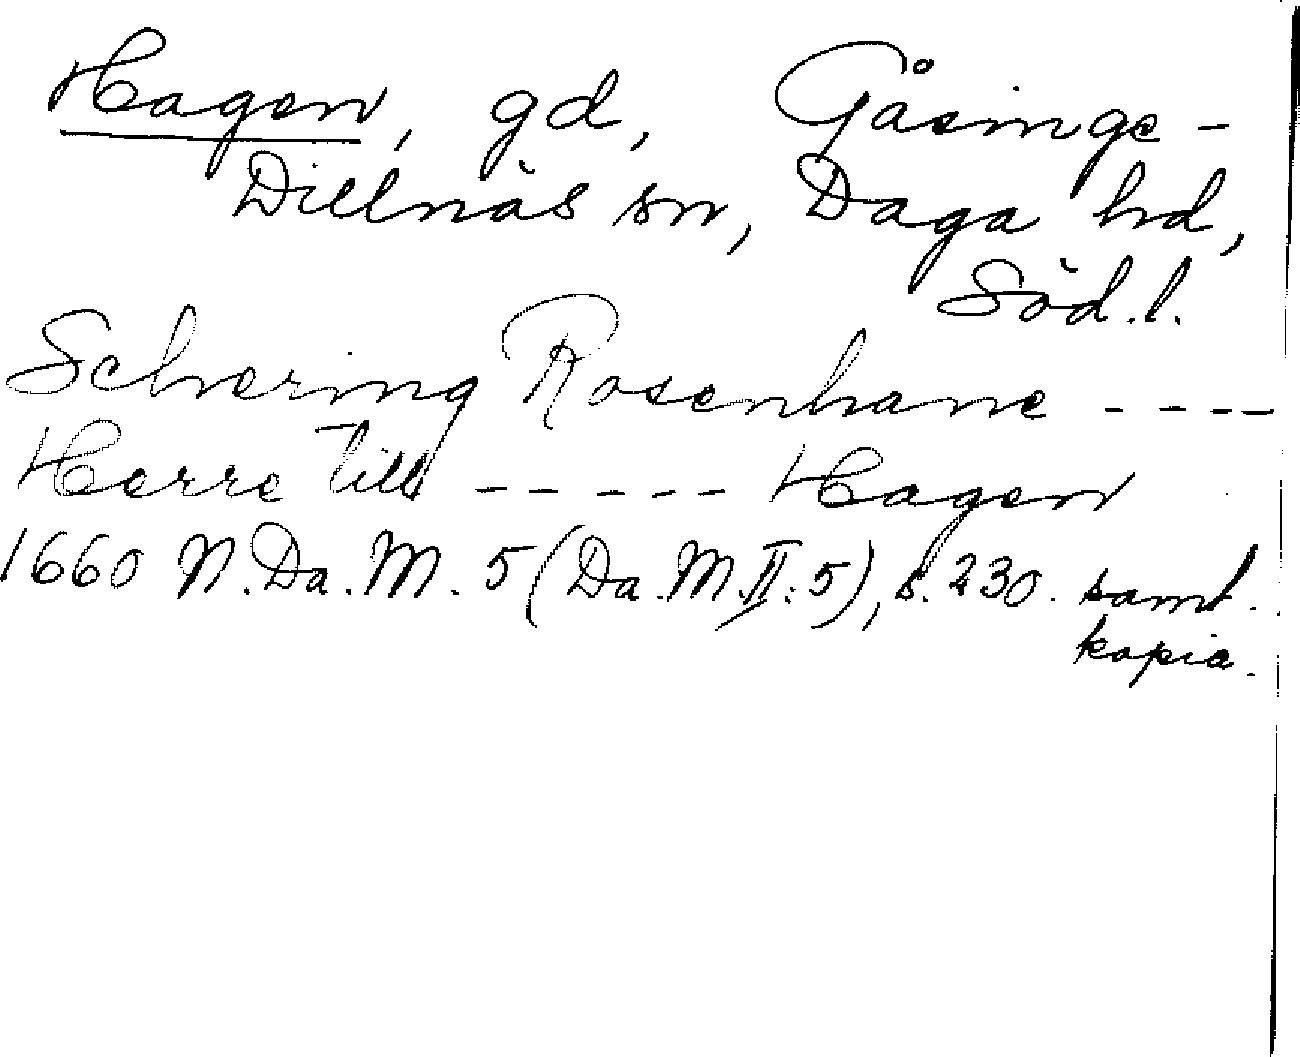 Hagen, gd, Gåsinge-
Dillnäs sn, Daga hd,
Söd.l.
Schering Rosenhane ----
Herre till ----- Hagen
1660 N.Da.M. 5 (Da.M.II:5), s. 230. samt.
kopia.